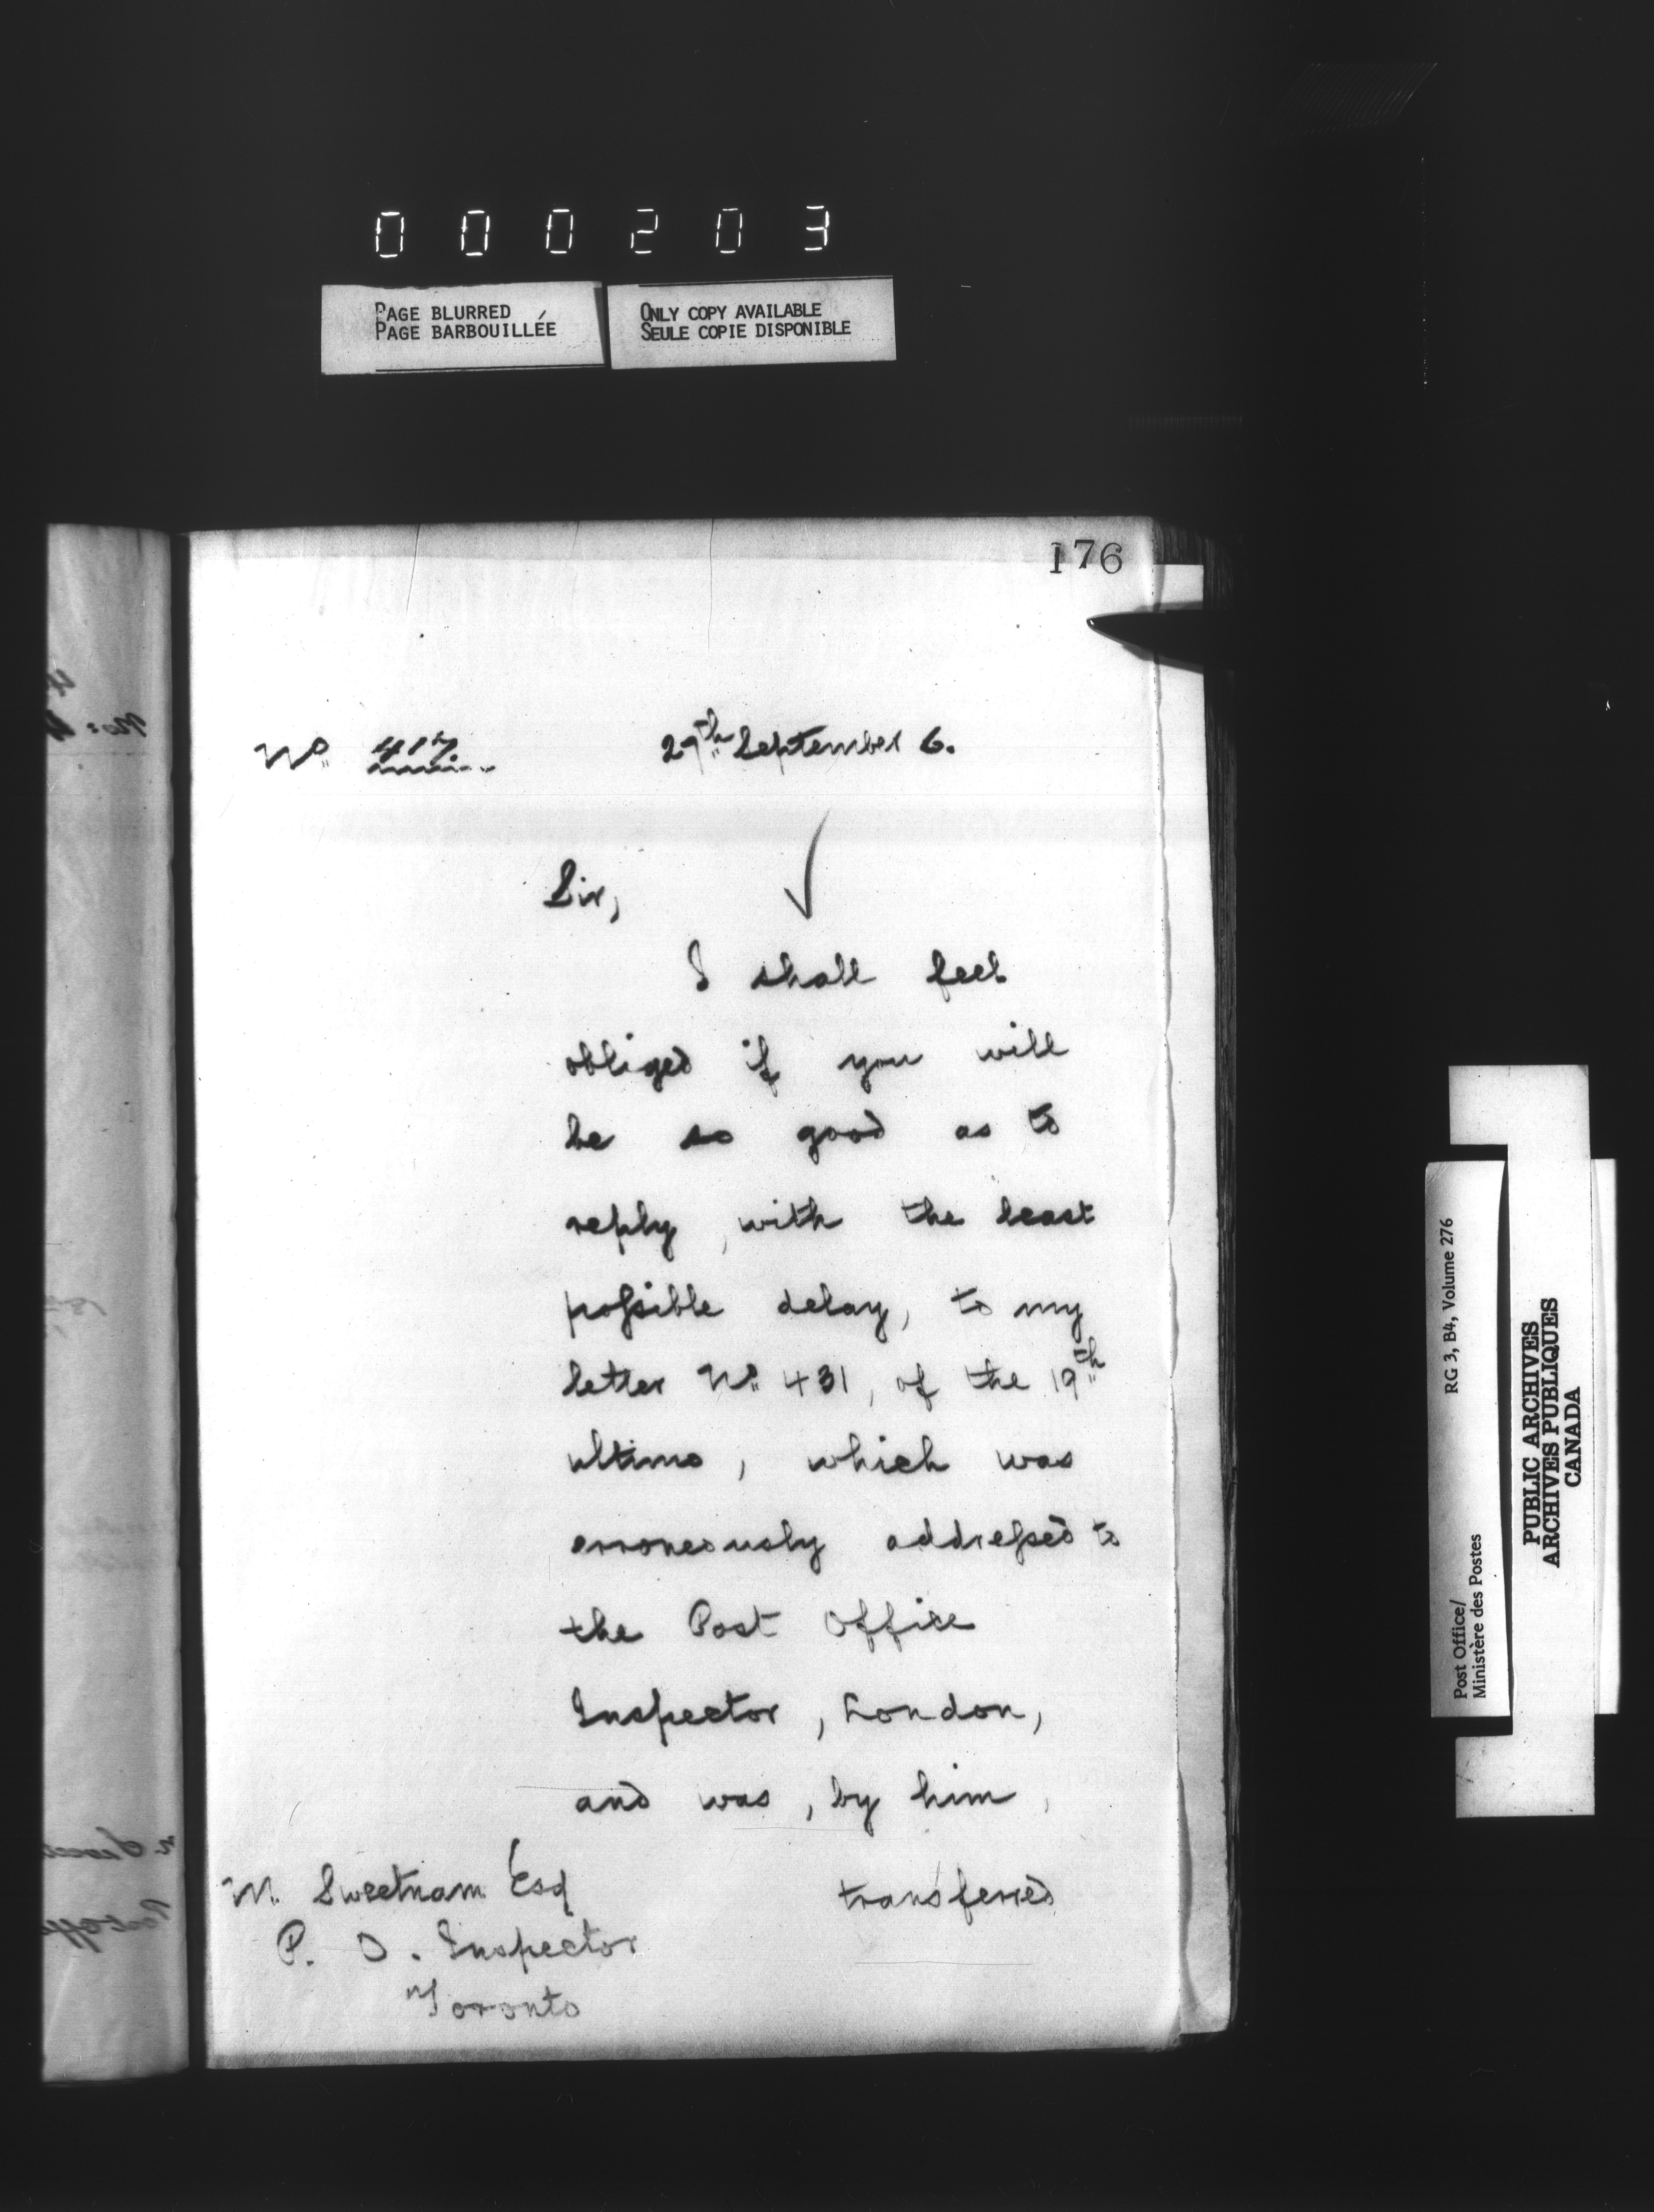 000203
PAGE BLURRED
PAGE BARBOUILLÉE
ONLY COPY AVAILABLE
SEULE COPIE DISPONIBLE
176
No. 417
29th September 6.
Sir,
I shall feel
obliged if you will
be so good as to
reply, with the least
possible delay, to my
letter No. 431, of the 19th
ultimo, which was
erroneously addressed to
the Post Office
Inspector, London,
and was, by him,
transferred
W. Sweetnam Esq
P. O. Inspector
Toronto
RG 3, B4, Volume 276
Post Office/
Ministère des Postes
PUBLIC ARCHIVES
ARCHIVES PUBLIQUES
CANADA